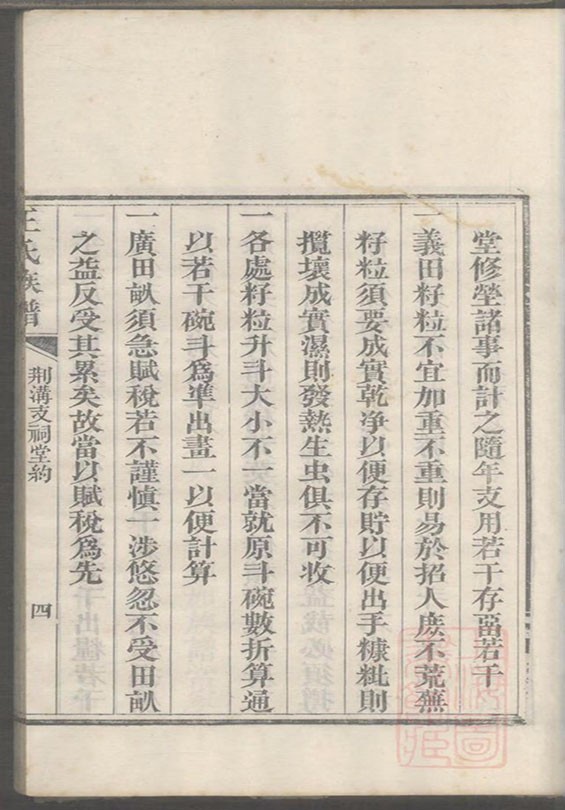 堂修塋諸事而計之隨年支用若干存畱若干
一義田籽粒不宜加重不重則易於招人庶不荒蕪
籽粒須要成實乾净以便存貯以便出手糠粃則
攬壞成實濕則發熱生虫俱不可收
一各處籽粒升斗大小不一當就原斗碗數折算通
以若干碗斗爲準出畫一以便計算
一廣田畝須急賦稅若不謹愼一涉悠忽不受田畝
之益反受其累矣故當以賦稅爲先
王氏族譜
荆溝支祠堂約
四